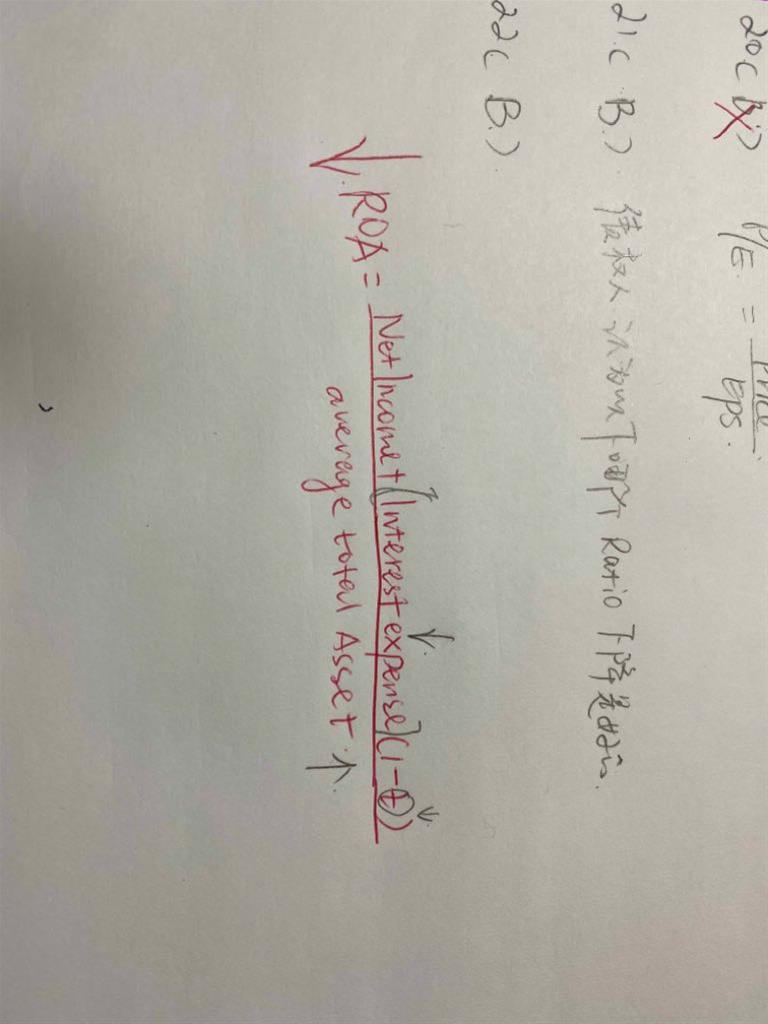 20( B.) P/E. = Price / eps.
21.( B.) 债权人认为以下哪个 Ratio 下降是好的.
22( B.)
↓. ROA = Net Income + [Interest expense](1-t)
average total Asset. ↑.